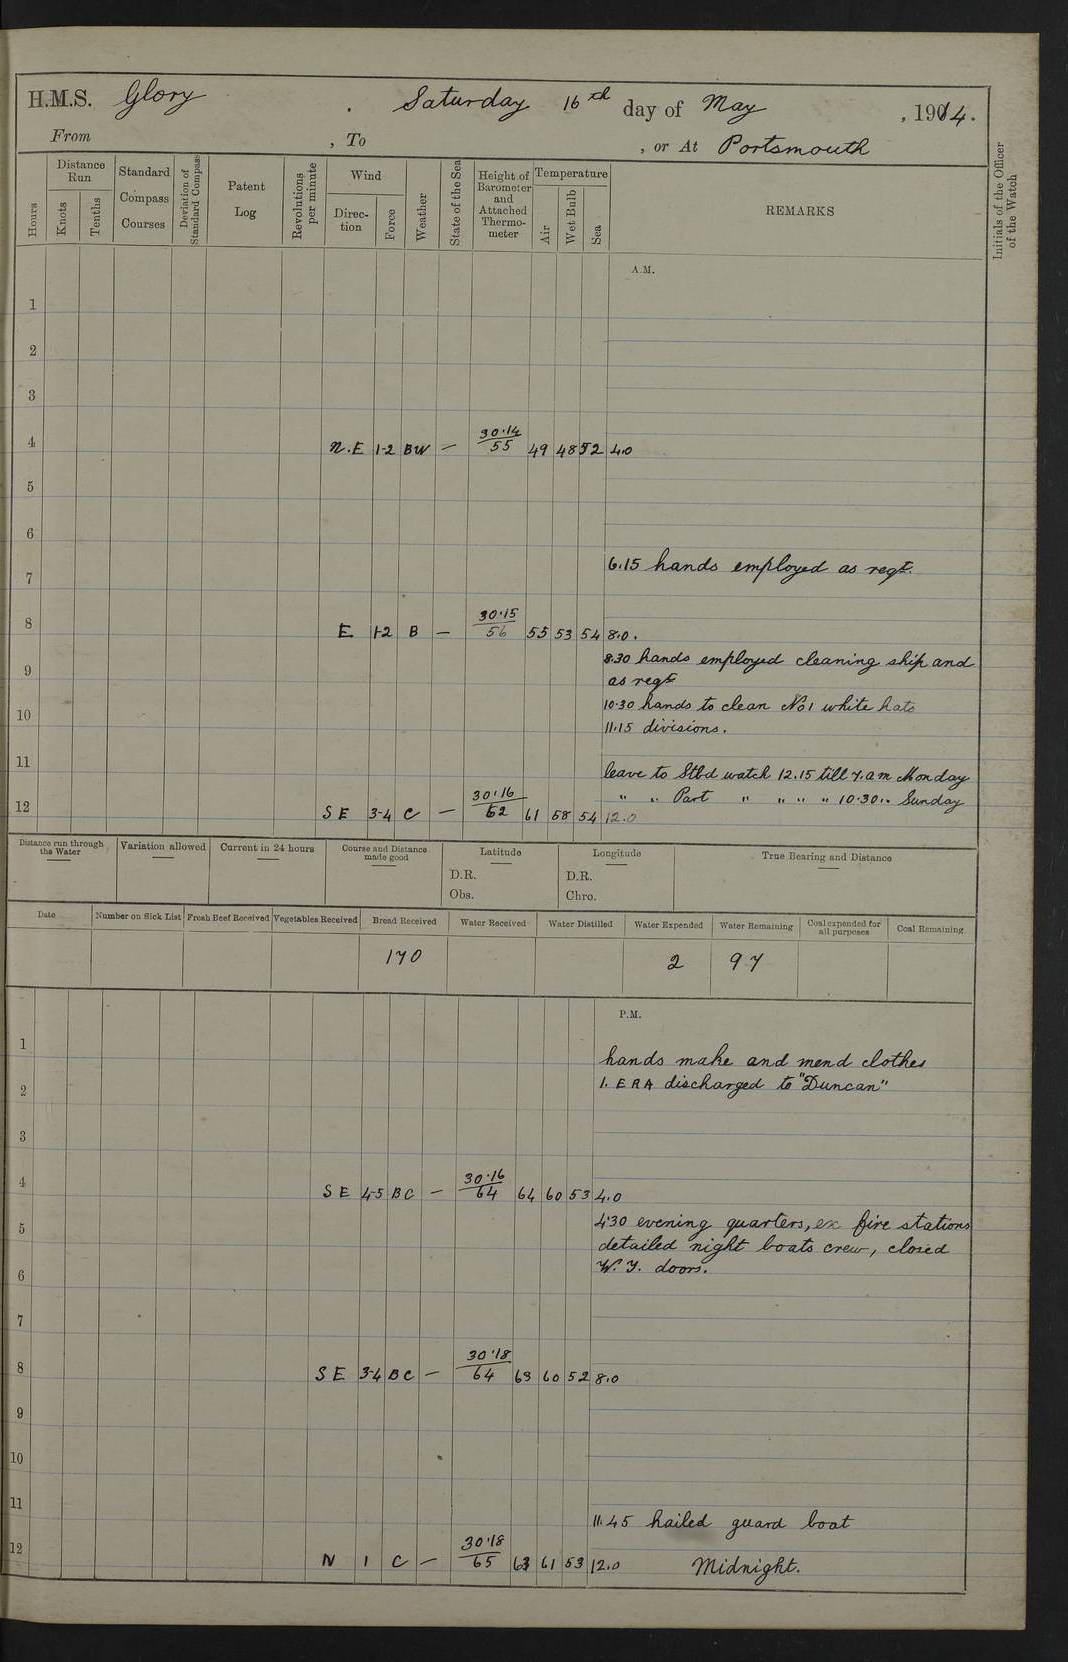 H.M.S. Glory . Saturday 16th day of May , 1914.
From , To , or At Portsmouth
Hours
Distance Run
Knots
Tenths
Standard Compass Courses
Deviation of Standard Compass
Patent Log
Revolutions per minute
Wind
Direc-tion
Force
Weather
State of the Sea
Height of Barometer and Attached Thermo-meter
Temperature
Air
Wet Bulb
Sea
REMARKS
Initials of the Officer of the Watch
A.M.
1
2
3
4 N.E 1-2 BW — 30.14/55 49 48 52 4.0
5
6
6.15 hands employed as reqd.
7
8 E 1-2 B — 30.15/56 55 53 54 8.0.
8.30 hands employed cleaning ship and
9 as reqd
10.30 hands to clean No1 white hats
10 11.15 divisions.
11 leave to Stbd watch 12.15 till 7. am Monday
" " Part " " " " 10.30 " Sunday
12 SE 3-4 C — 30.16/62 61 58 54 12.0
Distance run through the Water
Variation allowed
Current in 24 hours
Course and Distance made good
Latitude
D.R.
Obs.
Longitude
D.R.
Chro.
True Bearing and Distance
Date
Number on Sick List
Fresh Beef Received
Vegetables Received
Bread Received
Water Received
Water Distilled
Water Expended
Water Remaining
Coal expended for all purposes
Coal Remaining
170 2 97
P.M.
1 hands make and mend clothes
2 1. ERA discharged to "Duncan"
3
4 SE 4-5 BC — 30.16/64 64 60 53 4.0
4.30 evening quarters, ex fire stations
5 detailed night boats crew, closed
6 W.T. doors.
7
8 SE 3-4 BC — 30.18/64 63 60 52 8.0
9
10
11
11.45 hailed guard boat
12 N 1 C — 30.18/65 63 61 53 12.0 Midnight.